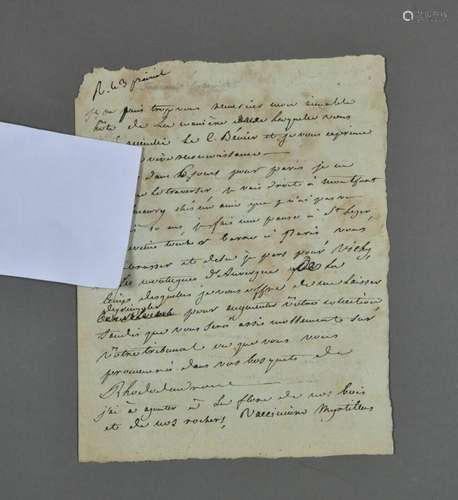 R. le 3 prairial
je ne puis trop vous remercier mon aimable
hôte de la manière dont laquelle vous
accueilli le C. Bevier et je vous exprime
vive reconnaissance
dans 6 jours pour paris je ne
le traverser je vais droit à montfort
chés un ami que je n'ai pas vu
10 ans, je fais une pause à St Leger,
à Paris vous
embrasser et de la je pars pour Vichy
les montagnes d'Auvergne de la
lesquelles je vous offre de ramasser
pour augmenter votre collection
tandis que vous serés assis mollement sur
votre tribunal ou que vous vous
promenerés dans vos bosquets de
Rhododendrons
j'ai à ajouter à la flore de nos bois
et de nos rochers, Vaccinium Myrtillus